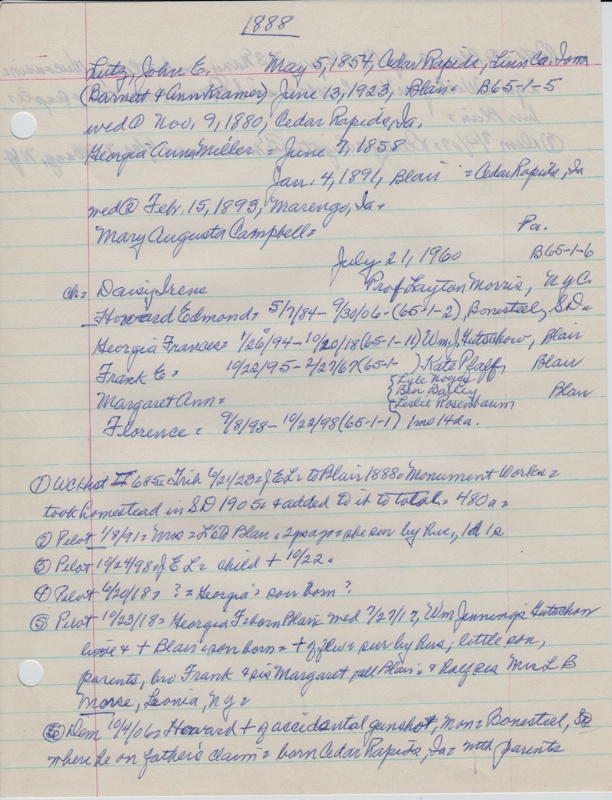 1888
Lutz, John E. May 5, 1854, Cedar Rapids, Linn Co. Iowa
(Barnett & Ann Kramer) June 13, 1923, Blair B65-1-5
wed① Nov. 9, 1880, Cedar Rapids, Ia.
Georgia Anna Miller = June 7, 1858
Jan. 4, 1891, Blair = Cedar Rapids, Ia
wed② Feb. 15, 1893, Marengo, Ia =
Mary Augusta Campbell = Pa.
July 21, 1960 B65-1-6
ch = Daisy Irene Prof Layton Morris, NYC
Howard Edmond = 5/7/84 - 9/30/06 - (65-1-2), Bonesteel, SD =
Georgia Frances = 1/26/94 - 10/20/18 (65-1-11) Wm J. Hutschow, Blair
Frank E = 10/22/95 - 2/27/67 (65-1- ) Kate Pfaff, Blair
Margaret Ann = { Lyle
Ben Blair
Leslie Rosenbaum
Florence = 9/8/98 - 10/22/98 (65-1-1) 1mo 14da.
① WC Hist II 685 = Trib 6/21/23 = J E L = to Blair 1888 = Monument Works =
took homestead in SD 1905 = & added to it to total = 480a =
② Pilot 1/8/91 = Mrs = L to Blair = 2 ago = she sur by hus, 1d 1s
③ Pilot 10/24/98 = J E L = child + 10/22 =
④ Pilot 6/20/18 = ? = Georgia's son born?
⑤ Pilot 10/23/18 = Georgia F = born Blair = wed 7/27/17, Wm Jennings Hutschow
& + Blair = son born = + of flu = sur by hus, little son,
parents, bro Frank & sis Margaret, all Blair = & half sis Mrs L B
Morse, Leonia, NY =
⑥ Dem 10/4/06 = Howard + of accidental gunshot, Mon = Bonesteel, SD
where he on father's claim = born Cedar Rapids, Ia = with parents